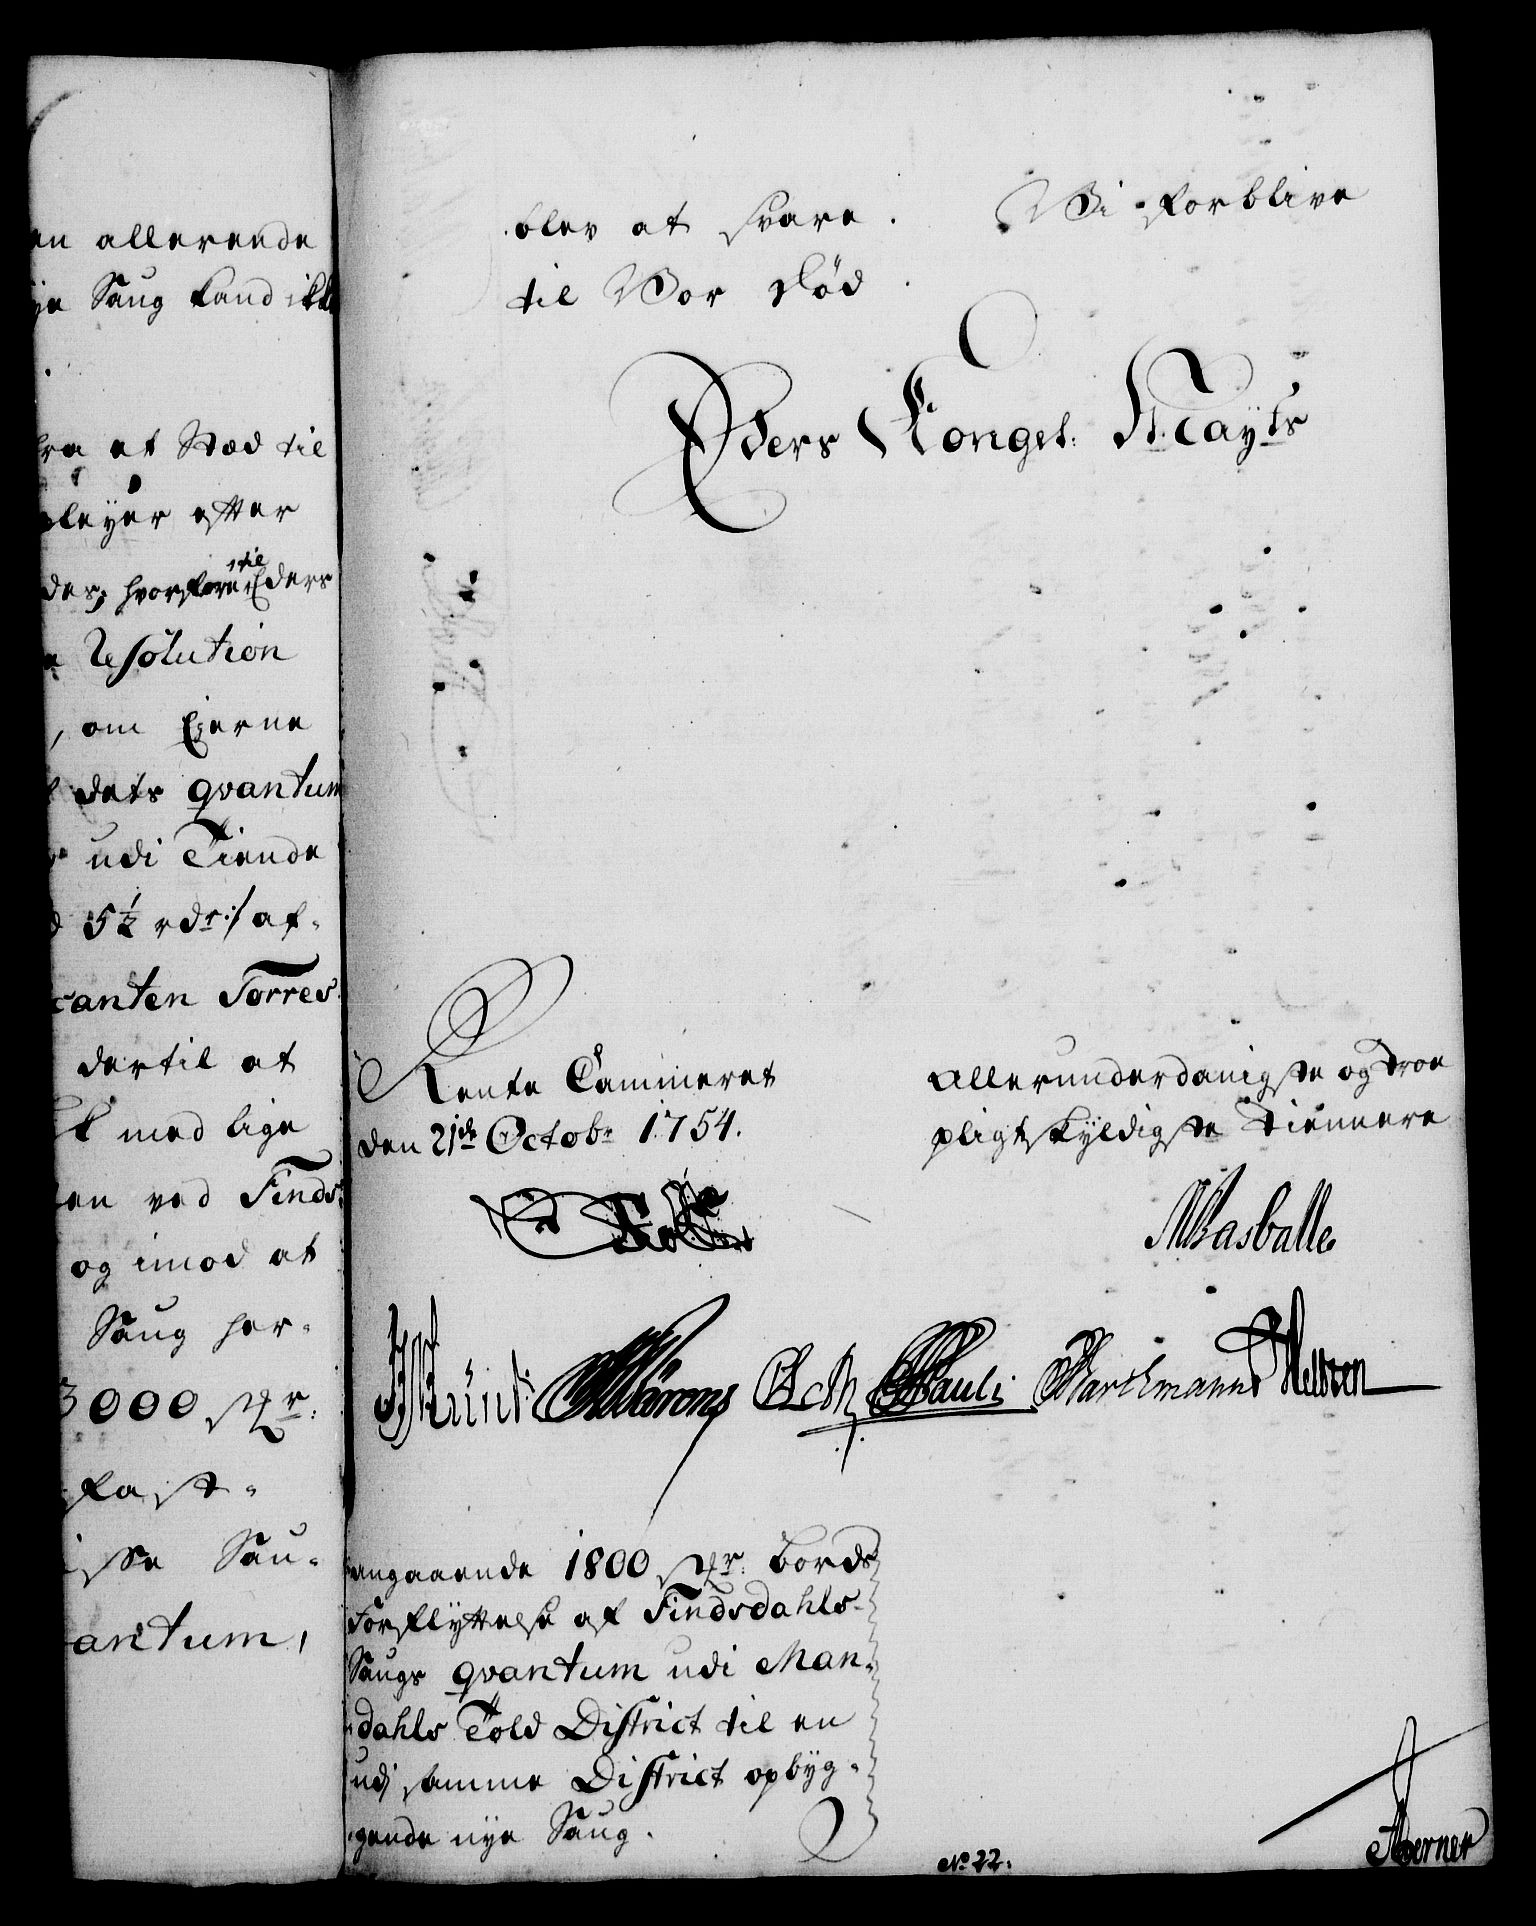 en allerende
ye Saug kand ikke
fra et Sted til
pleyer efter
til
des; hvorfore Eders
Resolution
, om Eierne
dets qvantum
udi Tiende
5½ rdr:/ af-
canten Torres-
dertil at
med lige
en ved Finds-
og imod at
Saug her-
3000 st[r]:
fast-
isse Sau-
antum,
blev at svare. Vi forblive
til Vor Død.
Eders Kongel: Mayts
Rente Cammeret
den 21de Octobr 1754.
Allerunderdanigste og troe
pligtskyldigste tiennere
Holst
MBasballe
Münt WBarons Esch Pauli Barthmann Heltzen
angaaende 1800 st[r]: bords
Forflyttelse af Findsdahls-
Saugs qvantum udi Man-
dahls Told District til en
udj samme District opbyg-
gende nye Saug.
No 22.
Hoerner